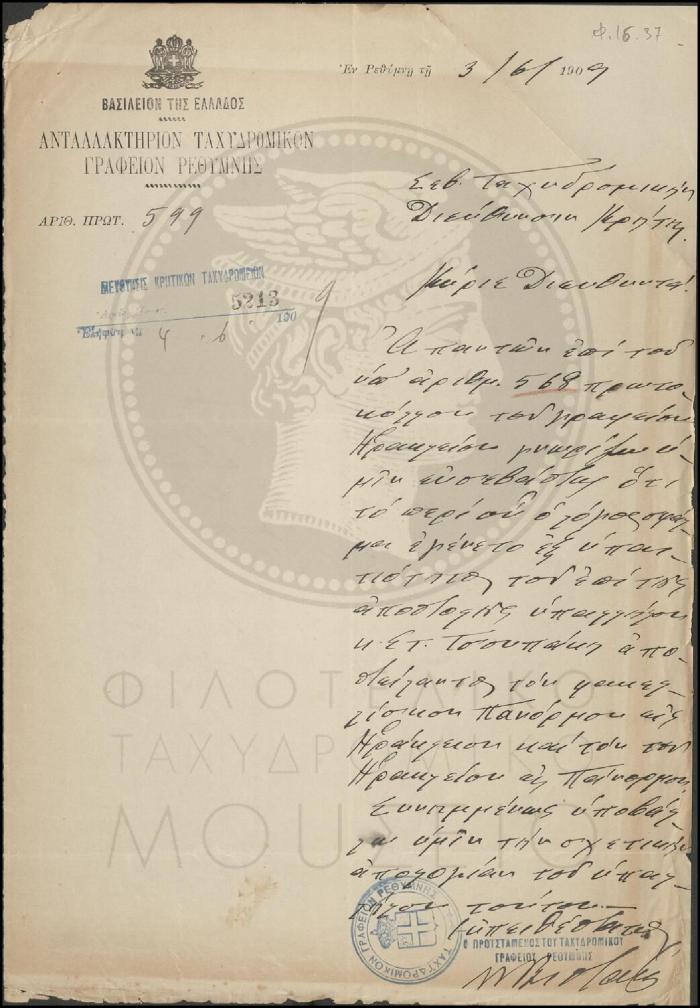 Φ.15.37
Ἐν Ρεθύμνῃ τῇ 3/6/1909
ΒΑΣΙΛΕΙΟΝ ΤΗΣ ΕΛΛΑΔΟΣ
ΑΝΤΑΛΛΑΚΤΗΡΙΟΝ ΤΑΧΥΔΡΟΜΙΚΟΝ
ΓΡΑΦΕΙΟΝ ΡΕΘΥΜΝΗΣ
ΑΡΙΘ. ΠΡΩΤ. 599
Σεβ. Ταχυδρομικὴν
Διεύθυνσιν Κρήτης
ΔΙΕΥΘΥΝΣΙΣ ΚΡΗΤΙΚΩΝ ΤΑΧΥΔΡΟΜΕΙΩΝ
5213
Ἐλήφθη τῇ 4 6 1909
Κύριε Διευθυντά,
Ἀπαντῶν ἐπὶ τοῦ
ὑπ' ἀριθμ. 568 πρωτο-
κόλλου τοῦ γραφείου
Ἡρακλείου γνωρίζω ὑ-
μῖν εὐσεβάστως ὅτι
τὸ περὶ οὗ ὁ λόγος σφάλ-
μα ἐγένετο ἐξ ὑπαι-
τιότητος τοῦ ἐπὶ τῆς
ἀποστολῆς ὑπαλλήλου
κ. Στ. Τσουπάκη ἀπο-
στείλαντος τὸν φακελ-
λίσκον Πανόρμου εἰς
Ἡράκλειον καὶ τὸν τοῦ
Ἡρακλείου εἰς Πάνορμον
Συνημμένως ὑποβάλ-
λω ὑμῖν τὴν σχετικὴν
ἀπολογίαν τοῦ ὑπαλ-
λήλου τούτου
Εὐπειθέστατος
Ο ΠΡΟΪΣΤΑΜΕΝΟΣ ΤΟΥ ΤΑΧΥΔΡΟΜΙΚΟΥ
ΓΡΑΦΕΙΟΥ ΡΕΘΥΜΝΗΣ
ΤΑΧΥΔΡΟΜΙΚΟΝ ΓΡΑΦΕΙΟΝ ΡΕΘΥΜΝΗΣ
ΦΙΛΟΤΕΛΙΚΟ
ΤΑΧΥΔΡΟΜΙΚΟ
ΜΟΥΣΕΙΟ